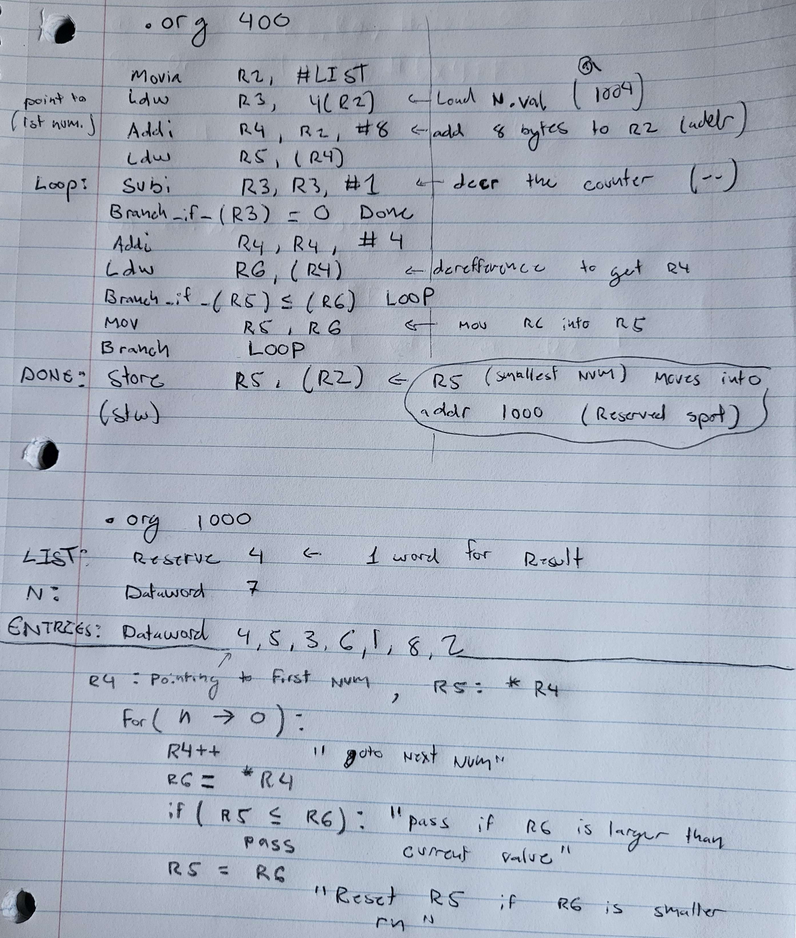 .org 400
Movia R2, #LIST @
point to Ldw R3, 4(R2) ← Load N.val (1004)
(1st num.) Addi R4, R2, #8 ← add 8 bytes to R2 (addr)
Ldw R5, (R4)
Loop: Subi R3, R3, #1 ← decr the counter (--)
Branch_if_(R3) = 0 Done
Addi R4, R4, #4
Ldw R6, (R4) ← derefference to get R4
Branch_if_(R5) ≤ (R6) LOOP
Mov R5, R6 ← Mov R6 into R5
Branch LOOP
DONE: Store R5, (R2) ← R5 (smallest Num) Moves into
(stw) addr 1000 (Reserved spot)
.org 1000
LIST: Reserve 4 ← 1 word for Result
N: Dataword 7
ENTRIES: Dataword 4, 5, 3, 6, 1, 8, 2
R4: Pointing to First Num, R5: *R4
For(n → 0):
R4++ "goto Next Num"
R6 = *R4
if(R5 ≤ R6): "pass if R6 is larger than
pass current value"
R5 = R6
"Reset R5 if R6 is smaller
rn"